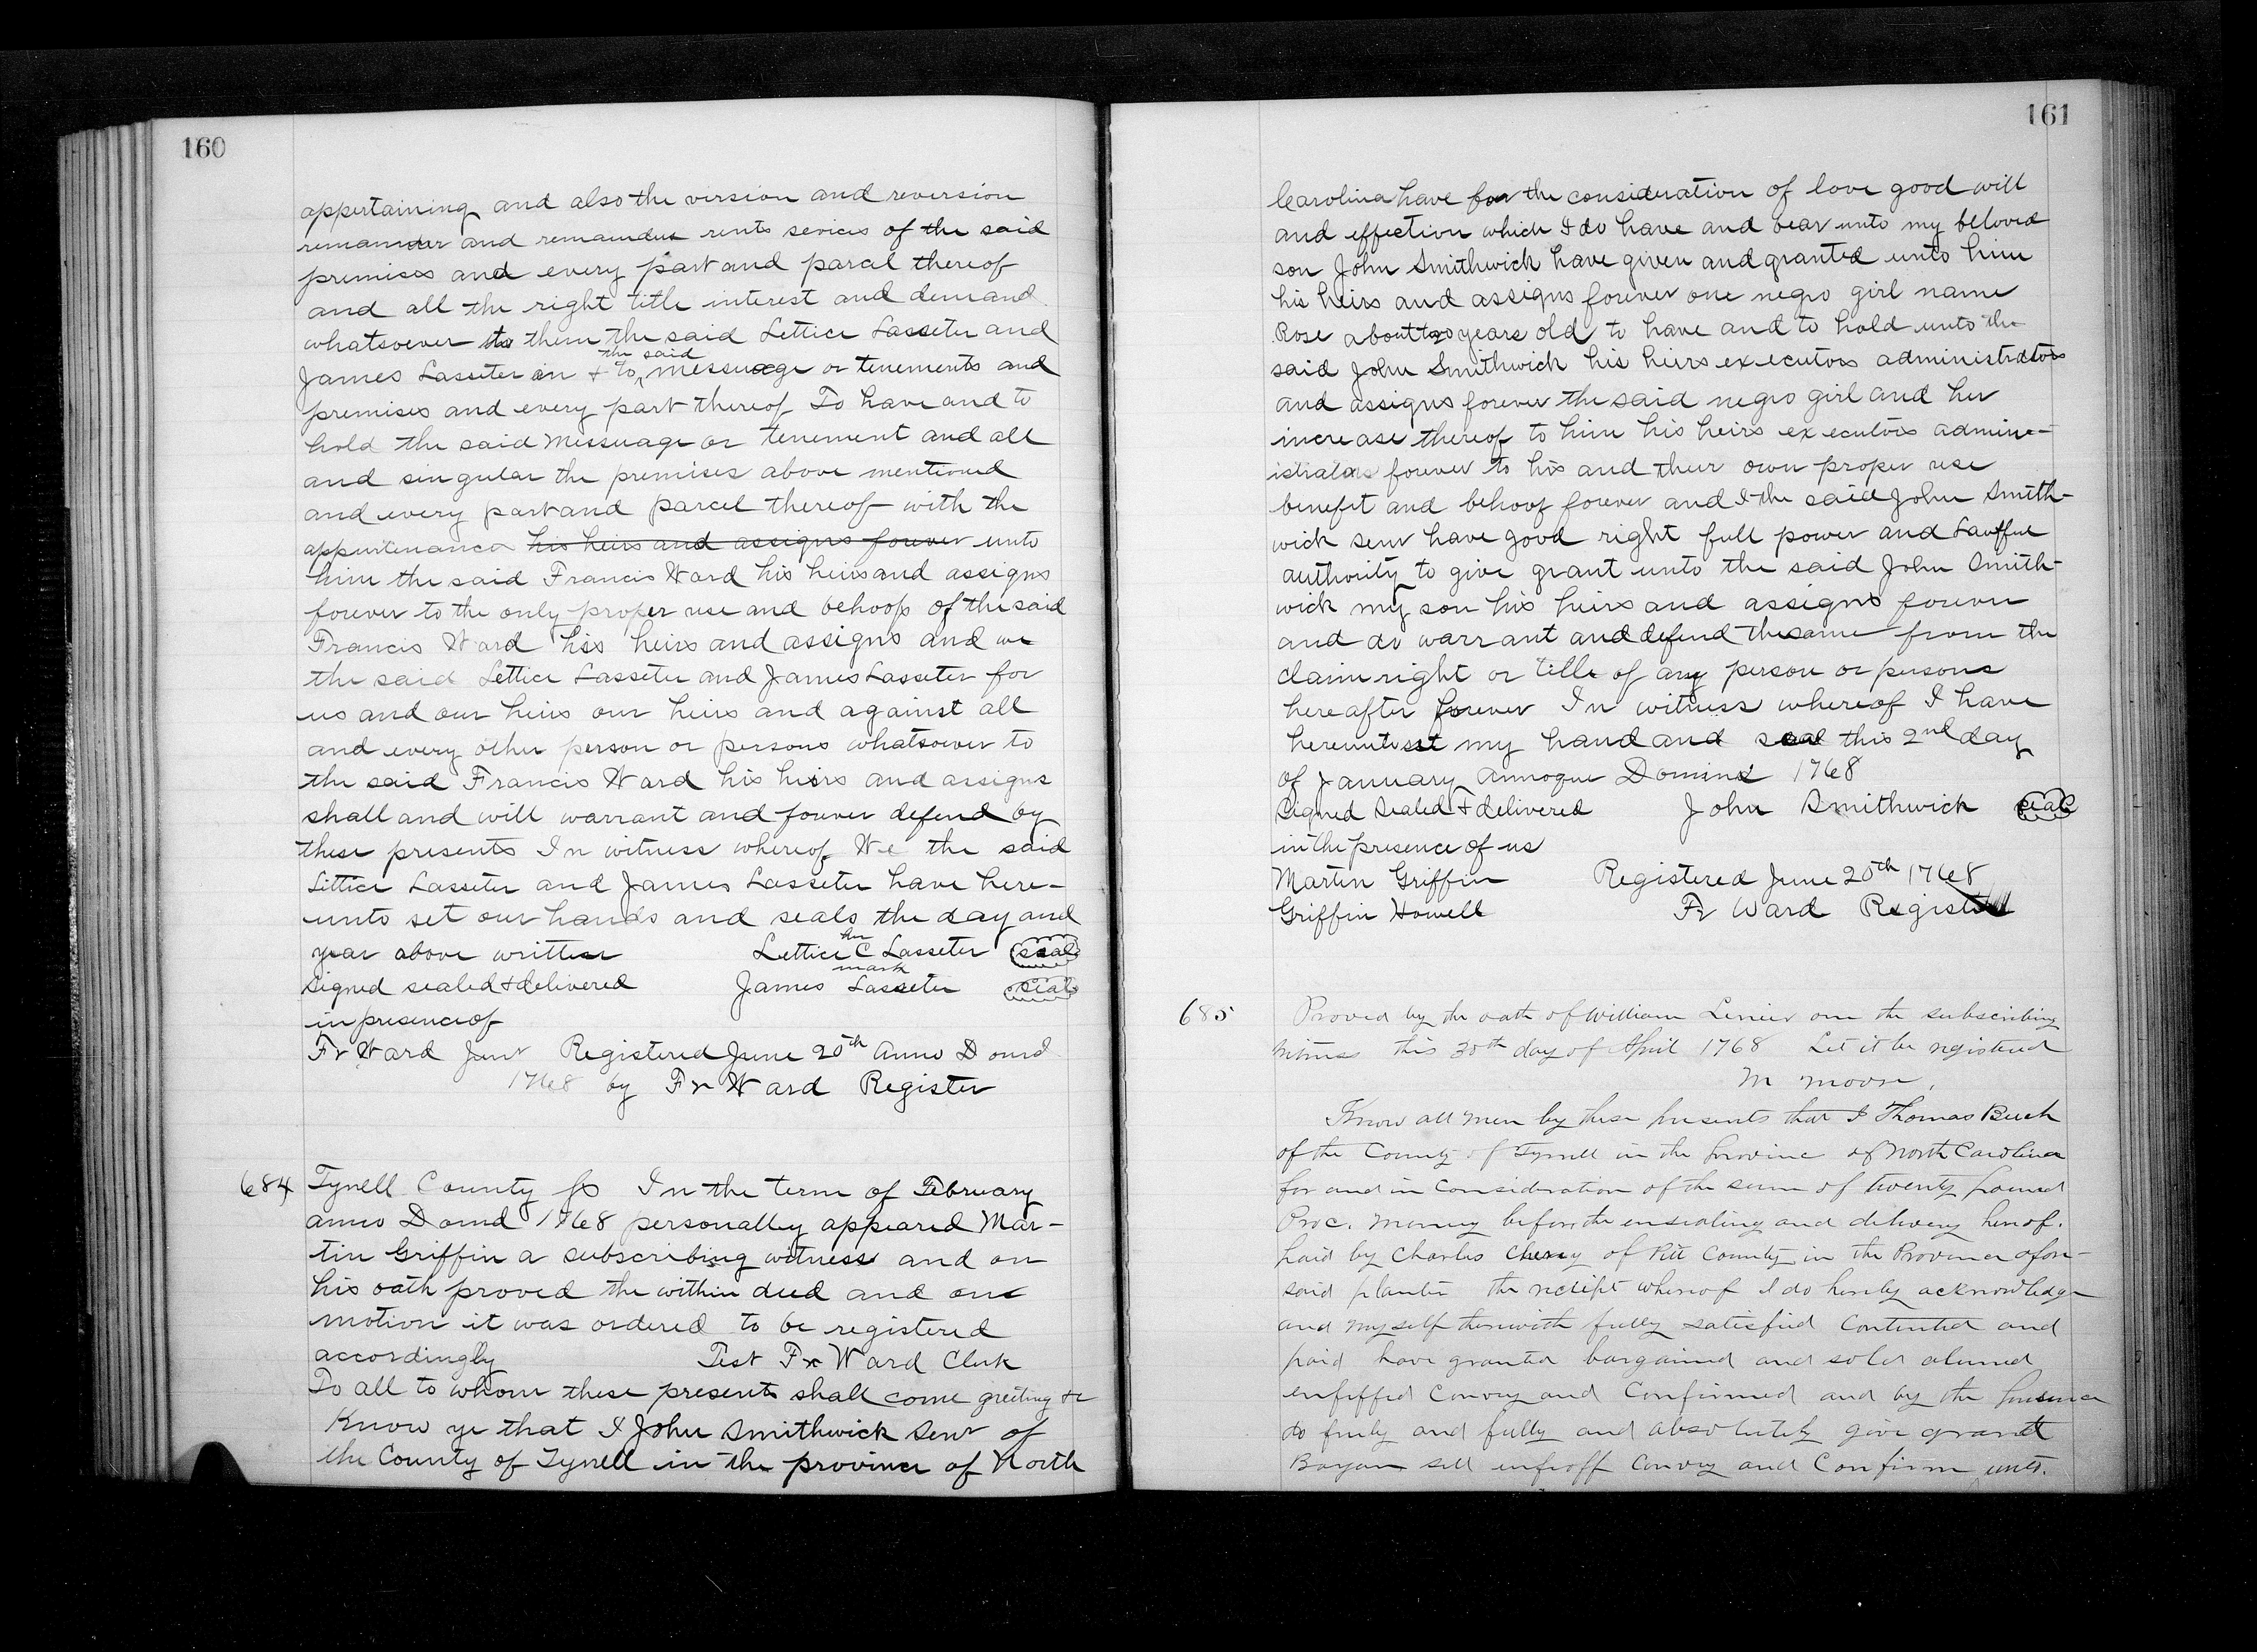 160
appertaining and also the version and reversion
remainder and remainder rents sevices of the said
premises and every part and parcel thereof
and all the right title interest and demand
whatsoever to them the said Lettice Lasseter and
the said
James Lasseter on & to messuage or tenements and
premises and every part thereof To have and to
hold the said Messuage or tenement and all
and singular the premises above mentioned
and every part and parcel thereof with the
appurtenances his heirs and assigns forever unto
him the said Francis Ward his heirs and assigns
forever to the only proper use and behoofs of the said
Francis Ward his heirs and assigns and we
the said Lettice Lasseter and James Lasseter for
us and our heirs our heirs and against all
and every other person or persons whatsoever to
the said Francis Ward his heirs and assigns
shall and will warrant and forever defend by
these presents In witness whereof We the said
Lettice Lasseter and James Lasseter have here-
unto set our hands and seals the day and
her
year above written Lettice C Lasseter seal
mark
signed sealed & delivered James Lasseter seal
in presence of
Fr Ward Junr Registered June 20th Anno Domd
1768 by Fr Ward Register
684 Tyrell County ss In the term of February
anno Domd 1768 personalley appeared Mar-
tin Griffin a subscribing witness and on
his oath proved the within deed and on
motion it was ordered to be registered
accordingly Test Fr Ward Clerk
To all to whom these presents shall come greeting &c
Know ye that I John Smithwick Senr of
the County of Tyrell in the province of North
161
Carolina have for the consideration of love good will
and effection which I do have and bear unto my beloved
son John Smithwick have given and granted unto him
his heirs and assigns forever one negro girl name
Rose about years old to have and to hold unto the
said John Smithwick his heirs executors administrators
and assigns forever the said negro girl and her
increase thereof to him his heirs executors admine-
istrators forever to his and their own proper use
benefit and behoof forever and I the said John Smith-
wick senr have good right full power and Lawfful
authority to give grant unto the said John Smith-
wick my son his heirs and assigns forever
and do warrant and defend the same from the
claim right or title of any person or persons
hereafter forever In witness whereof I have
hereunto set my hand and seal this 2nd day
of January annoque Domini 1768
Signed Sealed & delivered John Smithwick seal
in the presence of us
Martin Griffin Registered June 20th 1768
Griffin Howell Fr Ward Register
685 Proved by the oath of William Lenier one the subscribing
witness this 30th day of April 1768 Let it be registered
M Moore.
Know all men by these presents that I Thomas Buck
of the County of Tyrrell in the province of North Carolina
for and in Consideration of the sum of twenty pound
Proc. Money before the ensealing and delivery hereof.
paid by Charles Cherry of Pitt County in the Province afore-
said planter the reciept whereof I do hereby acknowledge
and myself therewith fully satisfied Contented and
paid have granted bargained and sold aliened
enfeffed Convey and Confirmed and by the presence
do freely and fully and absolutely give grant
sell enfeoff Convey and Confirm unto.